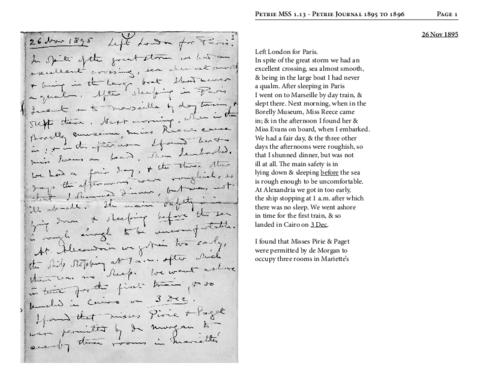 26 Nov 1895 Left London for Paris.
In spite of the great storm we had an
excellent crossing, sea almost smooth,
& being in the large boat I had never
a qualm. After sleeping in Paris
I went on to Marseille by day train, &
slept there. Next morning, when in the
Borelly museum, Miss Reece came
in; & in the afternoon I found her &
Miss Evans on board, when I embarked.
We had a fair day, & the three other
days the afternoons were roughish, so
that I shunned dinner, but was not
ill at all. The main safety is in
lying down & sleeping before the sea
is rough enough to be uncomfortable.
At Alexandria we got in too early,
the ship stopping at 1 a.m. after which
there was no sleep. We went ashore
in time for the first train, & so
landed in Cairo on 3 Dec.
I found that Misses Pirie & Paget
were permitted by de Morgan to
occupy three rooms in Mariette's
Petrie MSS 1.13 - Petrie Journal 1895 to 1896 Page 1
26 Nov 1895
Left London for Paris.
In spite of the great storm we had an
excellent crossing, sea almost smooth,
& being in the large boat I had never
a qualm. After sleeping in Paris
I went on to Marseille by day train, &
slept there. Next morning, when in the
Borelly Museum, Miss Reece came
in; & in the afternoon I found her &
Miss Evans on board, when I embarked.
We had a fair day, & the three other
days the afternoons were roughish, so
that I shunned dinner, but was not
ill at all. The main safety is in
lying down & sleeping before the sea
is rough enough to be uncomfortable.
At Alexandria we got in too early,
the ship stopping at 1 a.m. after which
there was no sleep. We went ashore
in time for the first train, & so
landed in Cairo on 3 Dec.
I found that Misses Pirie & Paget
were permitted by de Morgan to
occupy three rooms in Mariette's